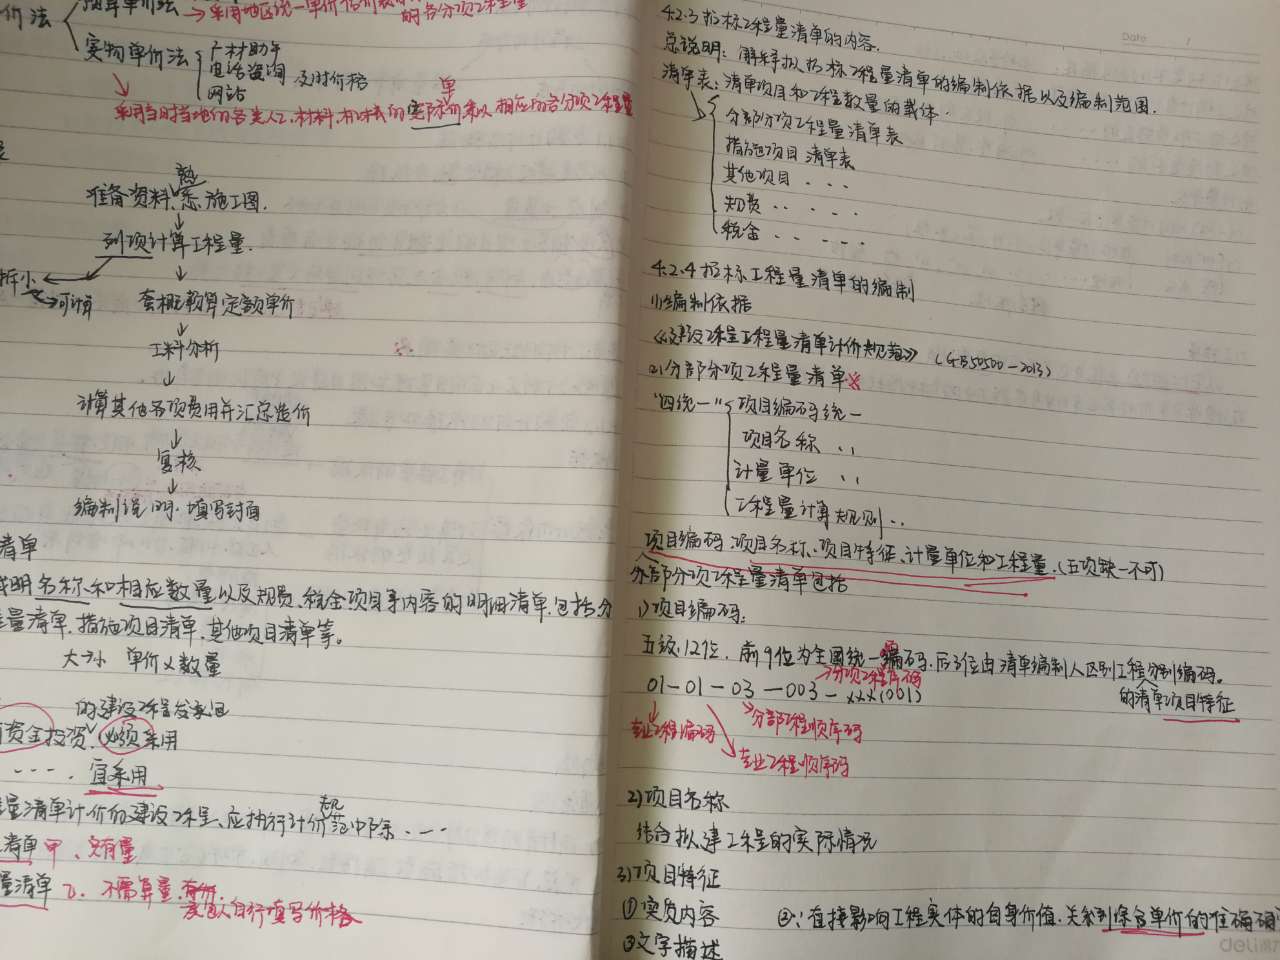 价法
预算单价法
→采用地区统一单价估价
的各分项工程量
实物单价法
广材助手
电话咨询
网站
及时价格
单
采用当时当地的各类人工、材料、机械的实际价来以相应的各分项工程量
熟
准备资料、悉施工图.
列项计算工程量.
拆小
→可计算
套概预算定额单价
工料分析
计算其他各项费用并汇总造价
复核
编制说明·填写封面
清单
明名称和相应数量以及规费、税金项目等内容的明细清单.包括分
量清单.措施项目清单.其他项目清单等。
大小 单价×数量
的建设工程发承包
资金投资、必须采用
..... 宜采用
规
量清单计价的建设工程、应执行计价范中除...
清单 甲、只有量
量清单 乙、不需算量.
人自行填写价格
4.2.3招标工程量清单的内容.
总说明：解释拟招标工程量清单的编制依据以及编制范围.
清单表：清单项目和工程数量的载体.
分部分项工程量清单表
措施项目清单表
其他项目...
规费.....
税金.....
4.2.4招标工程量清单的编制
(1)编制依据
《建设工程工程量清单计价规范》（GB50500-2013）
(2)分部分项工程量清单※
"四统一"
项目编码统一
项目名称..
计量单位..
工程量计算规则..
项目编码、项目名称、项目特征、计量单位和工程量.(五项缺一不可)
分部分项工程量清单包括
1)项目编码：
五级.12位．前9位为全国统一编码.后3位由清单编制人区别工程分别编码。
的清单项目特征
→分项工程序码
01-01-03-003-xxx(001)
专业工程编码
→分部工程顺序码
专业工程顺序码
2)项目名称
结合拟建工程的实际情况
3)项目特征
①实质内容 ②∵直接影响工程实体的自身价值.关系到综合单价的准确确
③文字描述
deli